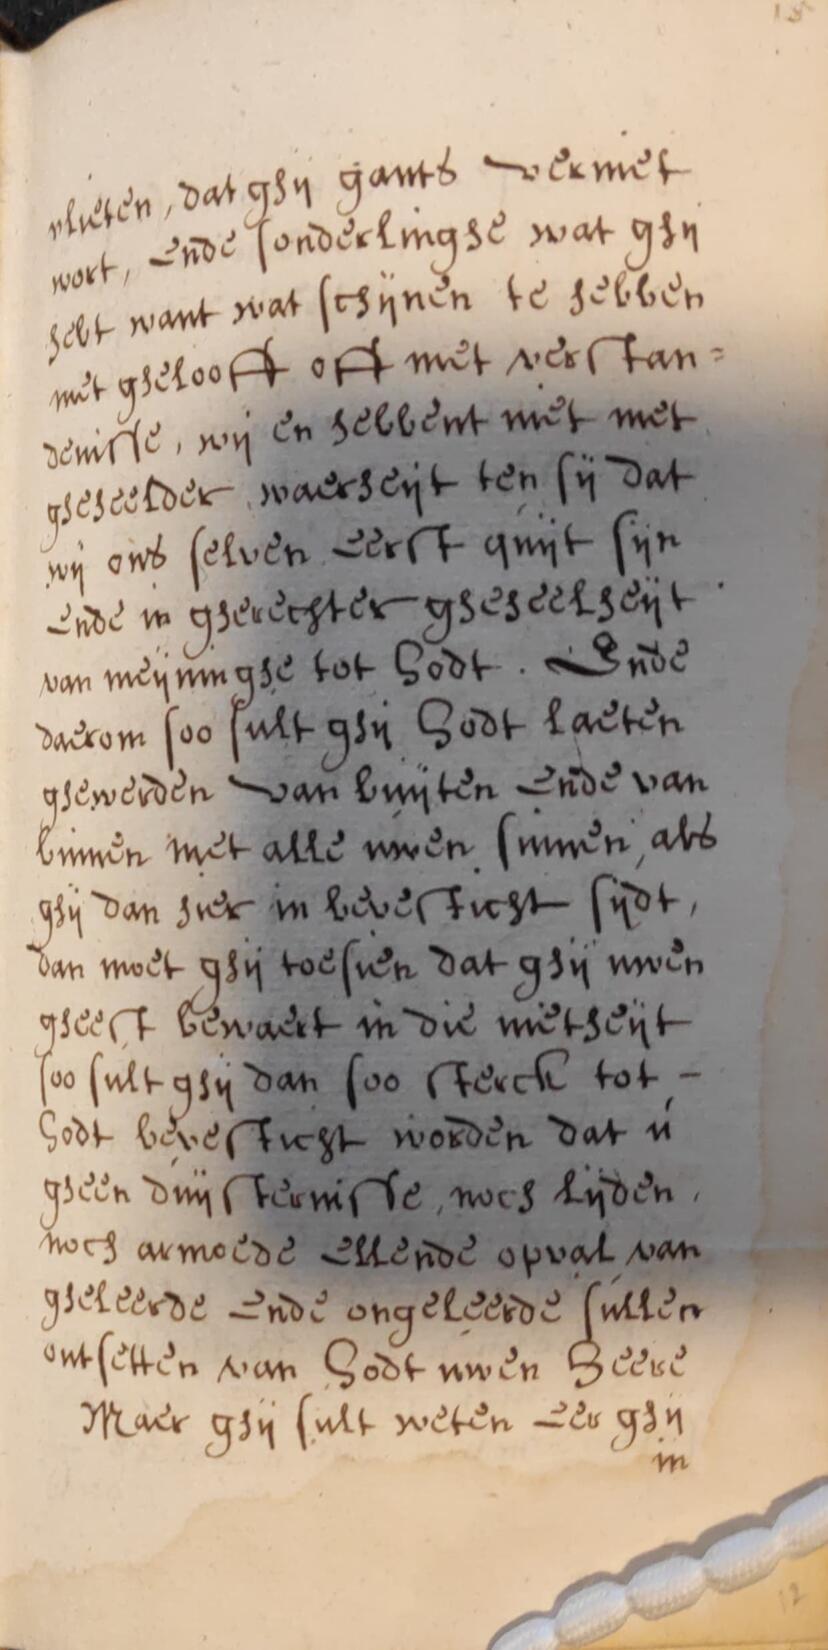 vlieten, dat ghij gants verniet
wort, Ende sonderlinghe wat ghij
hebt want wat schijnen te hebben
met gheloofft offt met verstan=
denisse, wij en hebbent niet met
gheheelder waerheijt ten sij dat
wij ons selven Eerst quijt sijn
Ende in gherechter gheheelheijt
van meijninghe tot Godt. Ende
daerom soo sult ghij Godt laeten
ghewerden van buijten Ende van
binnen met alle uwen sinnen, als
ghij dan hier in bevesticht sijdt,
dan moet ghij toesien dat ghij uwen
gheest bewaert in die nietheijt
soo sult ghij dan soo sterck tot -
Godt bevesticht worden dat u
gheen duijsternisse, noch lijden,
noch armoede Ellende opval van
gheleerde Ende ongeleerde sullen
ontsetten van Godt uwen Heere
Maer ghij sult weten Eer ghij
in
12